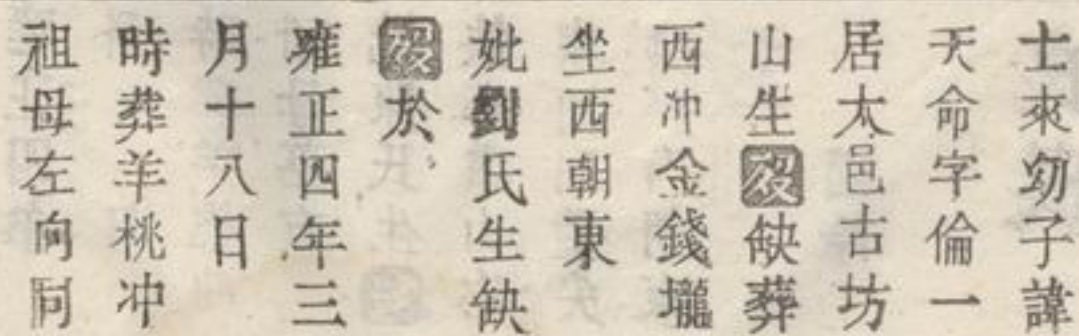 士來幼子諱
天命字倫一
居太邑古坊
山生歿缺葬
西冲金錢壠
坐西朝東
妣劉氏生缺
歿於
雍正四年三
月十八日
時葬羊桃冲
祖母左向同